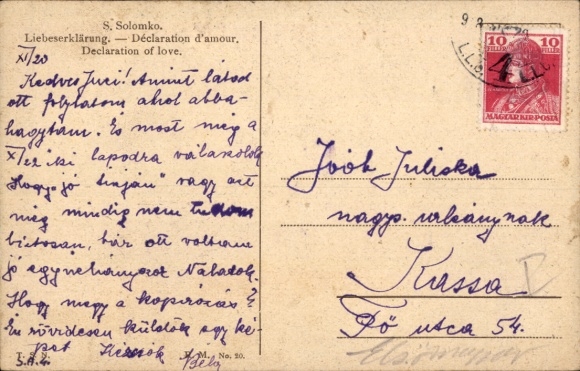 S. Solomko.
Liebeserklärung. — Déclaration d'amour.
Declaration of love.
XI/20
Kedves Juci! Amint látod
ott folytatom ahol abba-
hagytam. És most még a
XI/22 iki lapodra válaszolok
Hogy jó vagy azt
még mindig nem tudom
biztosan, bár ott voltam
jó egynehányszor Nálatok.
Hogy megy a kopirozás?
Én rövidesen küldök egy ké-
pet Béla
T. S. N. R. M. No. 20.
10 10
MAGYAR KIR. POSTA
Joób Juliska
nagys. urleánynak
Kassa
Fő utca 54.